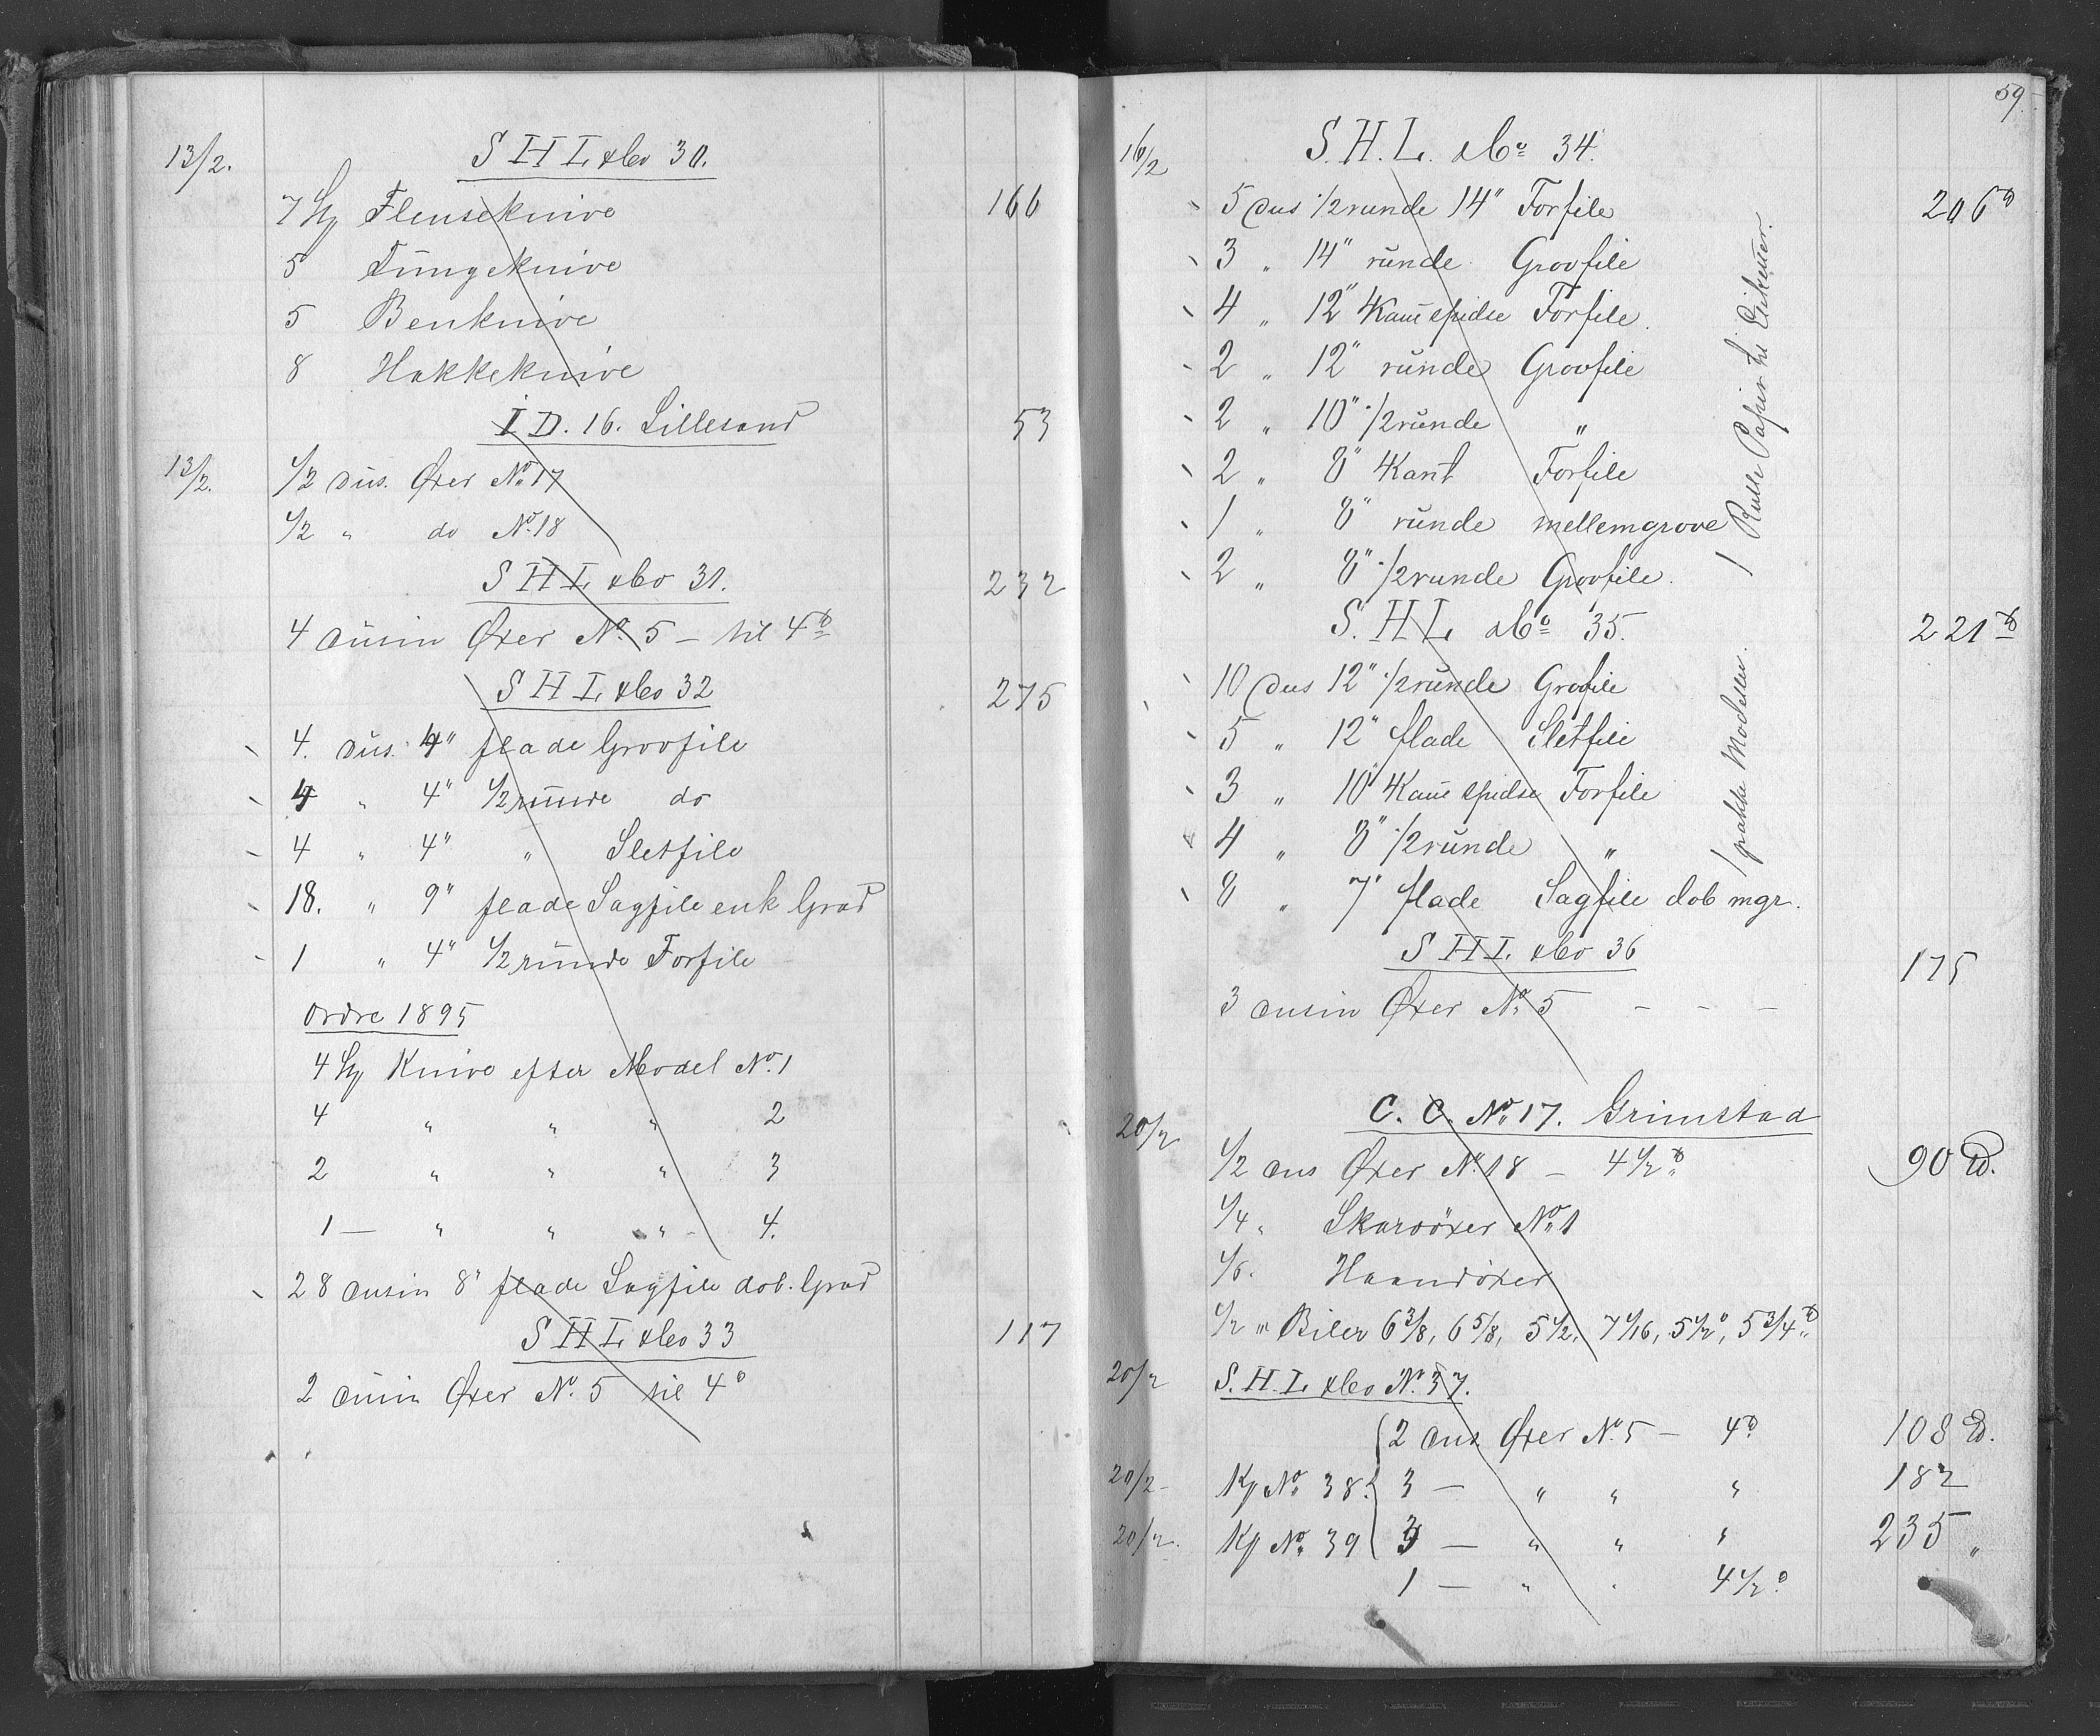 13/2. S H L do 30.
7 Sn Flenseknive 166
5 Tungeknive
5 Benknive
8 Hakkeknive
I D. 16. Lillesand 53
13/2. 1/2 dus. Øxer No 17
1/2 " do No 18
S H L do 31. 232
4 dusin Øxer No 5 — til 4 ℔
S H L do 32 275
4. dus. 4" flade Grovfile
4 " 4" 1/2 runde do
4 " 4" " Sletfile
18. " 9" flade Sagfile enk Grad
1 " 4" 1/2 runde Forfile
Ordre 1895
4 Sn Knive efter Model No. 1
4 " " " 2
2 " " " 3
1 — " " " 4.
28 dusin 8" flade Sagfile dob. Grad
S H L do 33 117
2 dusin Øxer No. 5 til 4 ℔
59.
16/2 S. H. L. do 34. 206 ℔
5 dus 1/2 runde 14" Forfile
3 " 14" runde Grovfile
4 " 12" 4kant spidse Forfile.
2 " 12" runde Grovfile
2 " 10" 1/2 runde "
2 " 8" 4Kant Forfile
1 " 8" runde mellemgrove
2 " 8" 1/2 runde Grovfile.
1 Rulle Papir til Etiketter.
S. H. L. do 35. 221 ℔
10 dus 12" 1/2 runde Grovfile
5 " 12" flade Sletfile
3 " 10" 4kant spidse Forfile
4 " 8" 1/2 runde "
8 " 7" flade Sagfile dob mgr.
1 pakke Modeller.
S H L do 36 175
3 dusin Øxer No. 5 — — —
20/2 C. C. No 17. Grimstad
1/2 dus Øxer No 18 — 4 1/2 ℔ 90 ℔.
1/4 " Skarvöxer No 1
1/6. Haandöxer
1/2 " Biler 6 3/8, 6 5/8, 5 1/2, 7 1/16, 5 1/2, 5 3/4 ℔
20/2 S. H. L. do No. 37.
2 dus Øxer No. 5 — 4 ℔ 108 ℔.
20/2 Kp No 38. 3 — " " " 182
20/2. Kp No. 39 3 — " " " 235 "
1 — " " 4 1/2 ℔